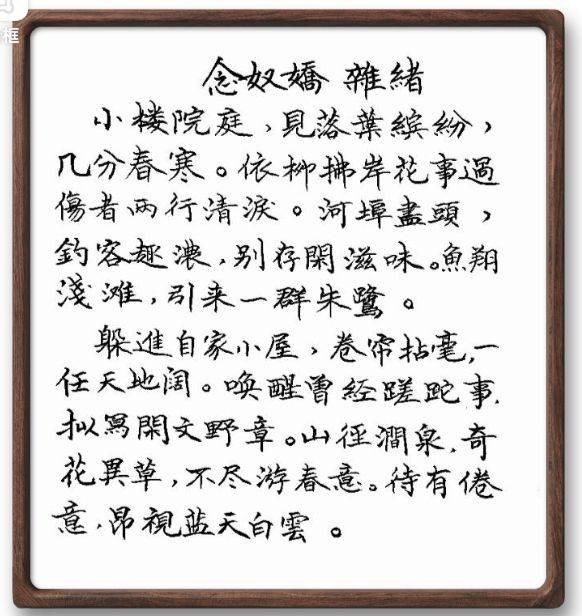 框
念奴嬌 雜緒
小楼院庭，見落葉缤紛，
几分春寒。依柳拂岸花事過
傷者兩行清淚。河埠盡頭，
釣客趣濃，别存閑滋味。魚翔
淺滩，引来一群朱鷺。
躲進自家小屋，卷帘拈毫，一
任天地阔。喚醒曾经蹉跎事，
拟寫閑文野章。山徑澗泉，奇
花異草，不尽游春意。待有倦
意，昂視蓝天白雲。